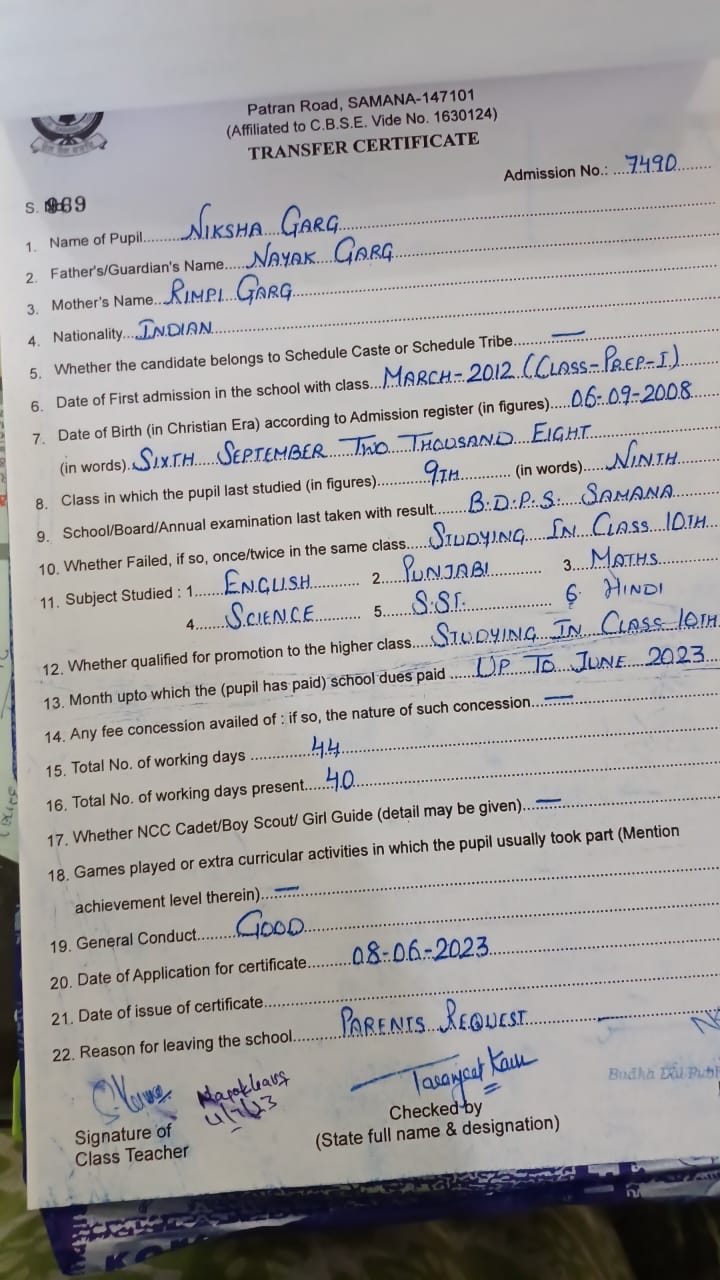 Patran Road, SAMANA-147101
(Affiliated to C.B.S.E. Vide No. 1630124)
TRANSFER CERTIFICATE
Admission No.: ....7490........
S. 969
1. Name of Pupil........NIKSHA GARG........
2. Father's/Guardian's Name.....NAYAK GARG........
3. Mother's Name...RIMPI GARG........
4. Nationality...INDIAN........
5. Whether the candidate belongs to Schedule Caste or Schedule Tribe........—........
6. Date of First admission in the school with class...MARCH-2012 (CLASS-PREP-I)
7. Date of Birth (in Christian Era) according to Admission register (in figures).....06-09-2008........
(in words).SIXTH SEPTEMBER TWO THOUSAND EIGHT........
8. Class in which the pupil last studied (in figures)........9TH........ (in words).....NINTH........
9. School/Board/Annual examination last taken with result........B.D.P.S. SAMANA........
10. Whether Failed, if so, once/twice in the same class.....STUDYING IN CLASS 10TH
11. Subject Studied : 1......ENGLISH........ 2.....PUNJABI........ 3....MATHS........
4......SCIENCE........ 5......S.ST......... 6. HINDI
12. Whether qualified for promotion to the higher class.....STUDYING IN CLASS 10TH
13. Month upto which the (pupil has paid) school dues paid ......UP TO JUNE 2023...
14. Any fee concession availed of : if so, the nature of such concession...—........
15. Total No. of working days ........44........
16. Total No. of working days present.....40........
17. Whether NCC Cadet/Boy Scout/ Girl Guide (detail may be given)...—........
18. Games played or extra curricular activities in which the pupil usually took part (Mention
achievement level therein)...—........
19. General Conduct........GOOD........
20. Date of Application for certificate........08-06-2023........
21. Date of issue of certificate........
22. Reason for leaving the school........PARENTS REQUEST........
Taranjeet Kaur
Budha Dal Publ
Signature of
Class Teacher
Checked by
(State full name & designation)